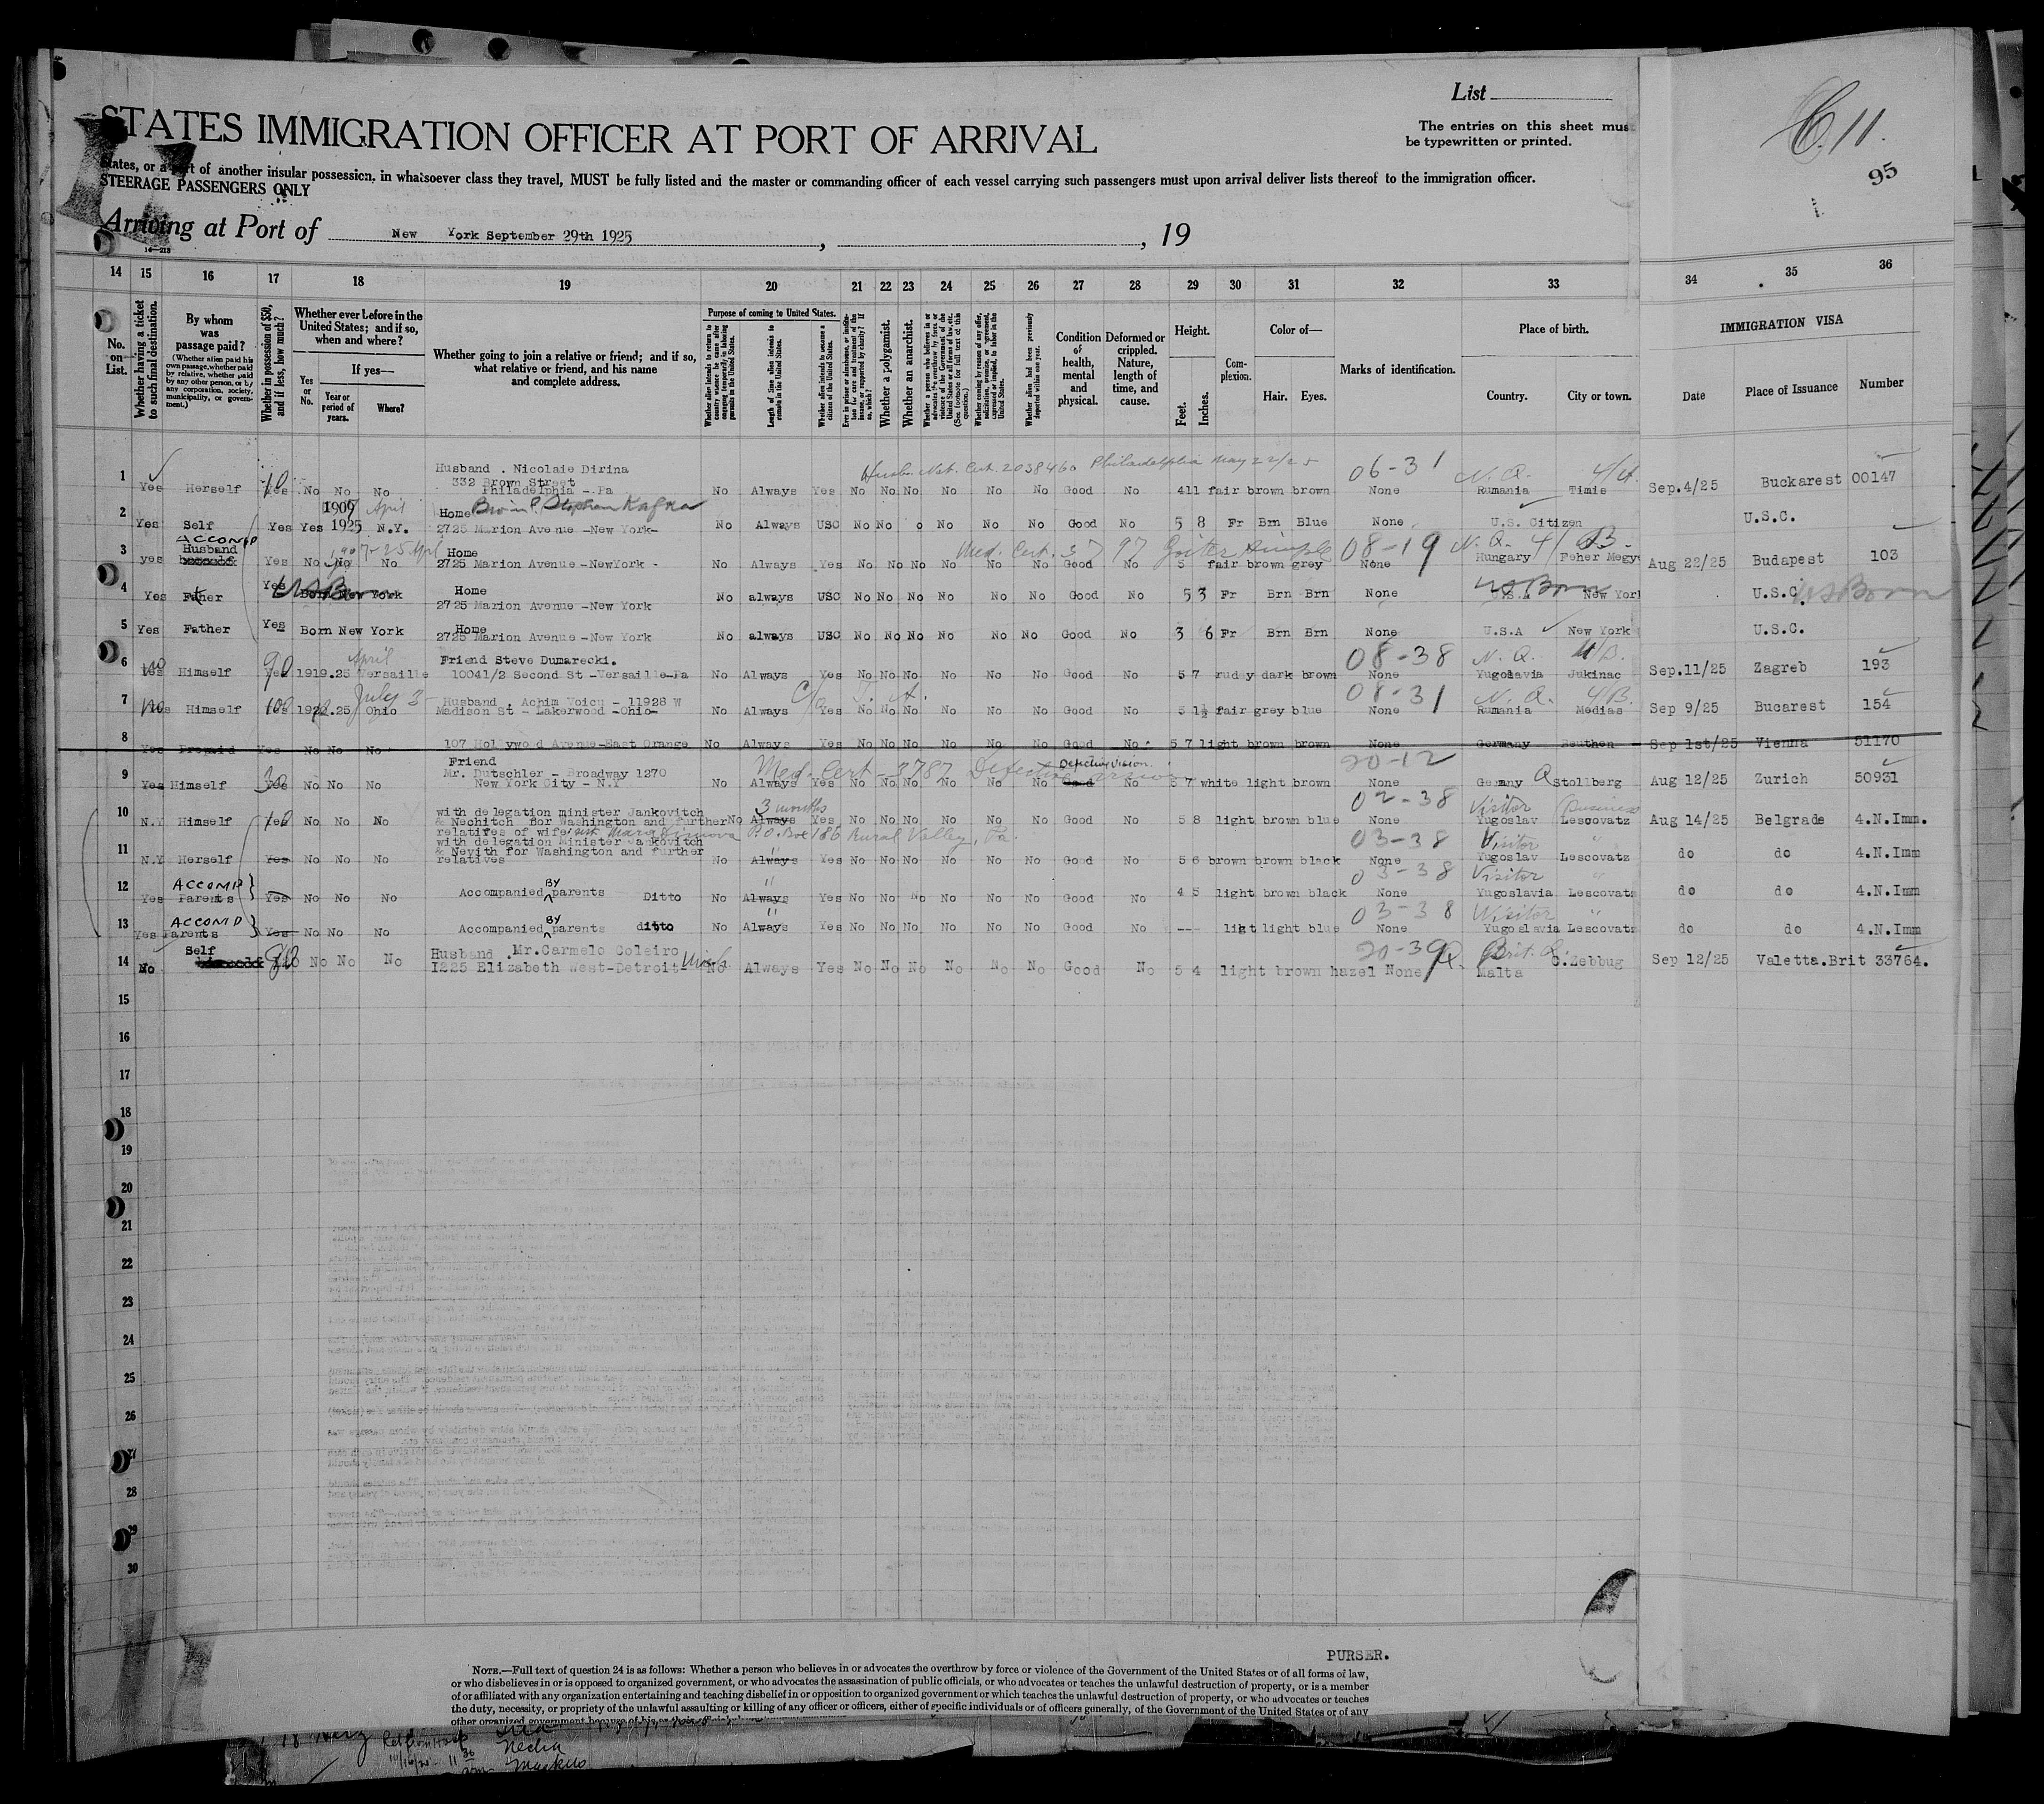 List
The entries on this sheet must
be typewritten or printed.
C.11.
95
STATES IMMIGRATION OFFICER AT PORT OF ARRIVAL
States, or a part of another insular possession, in whatsoever class they travel, MUST be fully listed and the master or commanding officer of each vessel carrying such passengers must upon arrival deliver lists thereof to the immigration officer.
STEERAGE PASSENGERS ONLY
Arriving at Port of New York September 29th 1925, , 19
14 15 16 17 18 19 20 21 22 23 24 25 26 27 28 29 30 31 32 33 34 35 36
No. on List.
Whether having a ticket to such final destination.
By whom was passage paid?
(Whether alien paid his own passage, whether paid by relative, whether paid by any other person, or by any corporation, society, municipality, or government.)
Whether in possession of $50, and if less, how much?
Whether ever before in the United States; and if so, when and where?
If yes—
Yes or No.
Year or period of years.
Where?
Whether going to join a relative or friend; and if so, what relative or friend, and his name and complete address.
Purpose of coming to United States.
Whether alien intends to return to country whence he came after engaging temporarily in laboring pursuits in the United States.
Length of time alien intends to remain in the United States.
Whether alien intends to become a citizen of the United States.
Whether a polygamist.
Whether an anarchist.
Whether alien had been previously deported within one year.
Condition of health, mental and physical.
Deformed or crippled. Nature, length of time, and cause.
Height.
Feet. Inches.
Complexion.
Color of—
Hair. Eyes.
Marks of identification.
Place of birth.
Country. City or town.
IMMIGRATION VISA
Date Place of Issuance Number
Husband . Nicolaie Dirina Husb. Nat. Cert. 2038460 Philadelphia May 22/25 06-31 N.Q. 4/A.
332 Brown Street
1 Yes Herself Yes 10 No No No Philadelphia - Pa No Always Yes No No No No No No Good No 4 11 fair brown brown None Rumania Timis Sep.4/25 Buckarest 00147
1909 April Home Stephan Kafka
2 Yes Self Yes Yes 1925 N.Y. 2725 Marion Avenue -New York- No Always USC No No o No No No Good No 5 8 Fr Brn Blue None U.S. Citizen U.S.C.
ACCOMP
Husband Home Med. Cert. 3797 Goiter simple 08-19 N.Q. 4/B.
3 yes Yes No No No 2725 Marion Avenue -NewYork - No Always Yes No No No No No No Good No 5 fair brown grey None Hungary Feher Megy Aug 22/25 Budapest 103
4 Yes Father Yes US Born Born New York Home
2725 Marion Avenue -New York No always USC No No No No No No Good No 5 3 Fr Brn Brn None US Born U.S.A New York U.S.C. US Born
5 Yes Father Yes Born New York Home
2725 Marion Avenue -New York No always USC No No No No No No Good No 3 6 Fr Brn Brn None U.S.A New York U.S.C.
April Friend Steve Dumarecki. 08-38 N.Q. 4/B.
6 No Yes Himself Yes 90 1919.25 Versaille 10041/2 Second St -Versaille-Pa No Always Yes No No No No No No Good No 5 7 rudy dark brown None Yugolavia Jukinac Sep.11/25 Zagreb 193
July 3- Husband . Achim Voicu - 11928 W 08-31 N.Q. 4/B.
7 No Himself Yes 100 .25 Ohio Madison St - Lakerwood -Ohio- No Always Yes No No No No No No Good No 5 1½ fair grey blue None Rumania Medias Sep 9/25 Bucarest 154
8 Yes Prepaid Yes No No No 107 Hollywood Avenue-East Orange No Always Yes No No No No No No Good No 5 7 light brown brown None Germany Reuthen Sep 1st/25 Vienna 51170
Friend Med. Cert - 3787 Defective vision Defective Vision. 20-12
Mr. Dutschler - Broadway 1270
9 Yes Himself No No No New York City - N.Y No Always Yes No No No No No No Good No 5 7 white light brown None Gemany Q Stollberg Aug 12/25 Zurich 50931
with delegation minister Jankovitch 3 months 02-38 Visitor (Business
10 N.Y Himself Yes No No No & Nechitch for Washington and further No Always Yes No No No No No No Good No 5 8 light brown blue None Yugoslav Lescovatz Aug 14/25 Belgrade 4.N.Imm.
relatives of wife P.O. Box 186 Rural Valley, Pa.
with delegation Minister Jankovitch 03-38 Visitor "
11 N.Y Herself Yes No No No & Nevith for Washington and further
relatives No Always Yes No No No No No No Good No 5 6 brown brown black None Yugoslav Lescovatz do do 4.N.Imm
ACCOMP BY " 03-38 Visitor "
12 Yes Parents Yes No No No Accompanied parents Ditto No Always Yes No No No No No No Good No 4 5 light brown black None Yugoslavia Lescovatz do do 4.N.Imm
ACCOMP BY " 03-38 Visitor "
13 Yes Parents Yes No No No Accompanied parents ditto No Always Yes No No No No No No Good No --- light light blue None Yugoslavia Lescovatz do do 4.N.Imm
Self Husband . Mr.Carmelo Coleiro 20-39 Brit. Q.
14 No No No No 1225 Elizabeth West-Detroit- Mich. No Always Yes No No No No No No Good No 5 4 light brown hazel None Malta C.Zebbug Sep 12/25 Valetta.Brit 33764.
15
16
17
18
19
20
21
22
23
24
25
26
27
28
29
30
PURSER.
NOTE.—Full text of question 24 is as follows: Whether a person who believes in or advocates the overthrow by force or violence of the Government of the United States or of all forms of law,
or who disbelieves in or is opposed to organized government, or who advocates the assassination of public officials, or who advocates or teaches the unlawful destruction of property, or is a member
of or affiliated with any organization entertaining and teaching disbelief in or opposition to organized government or which teaches the unlawful destruction of property, or who advocates or teaches
the duty, necessity, or propriety of the unlawful assaulting or killing of any officer or officers, either of specific individuals or of officers generally, of the Government of the United States or of any